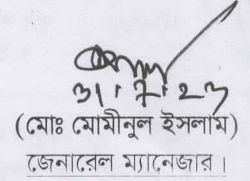 ৩১.৭.২৩
(মোঃ মোমীনুল ইসলাম)
জেনারেল ম্যানেজার।